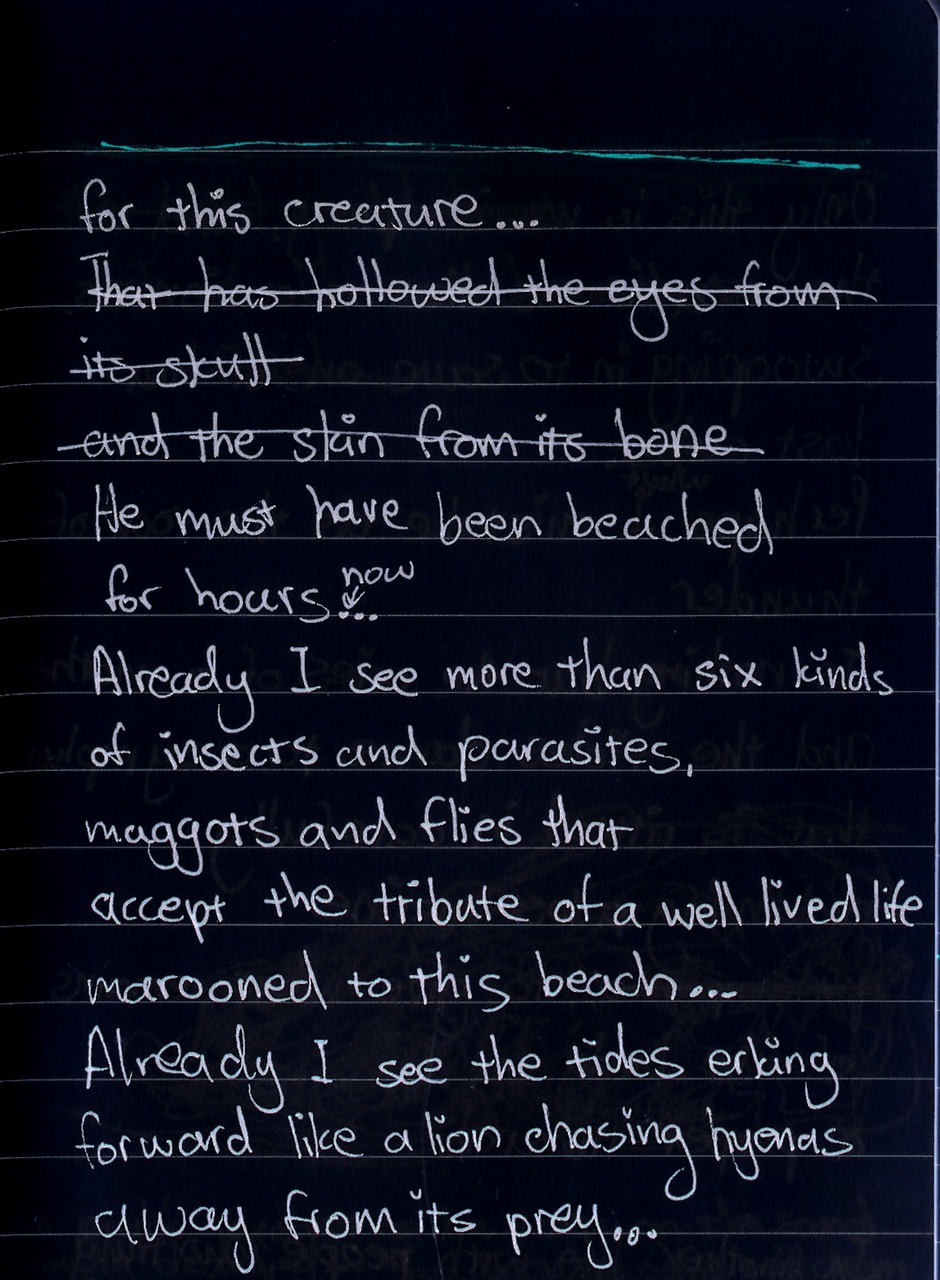 for this creature...
That has hollowed the eyes from
its skull
and the skin from its bone
He must have been beached
now
for hours...
Already I see more than six kinds
of insects and parasites,
maggots and flies that
accept the tribute of a well lived life
marooned to this beach...
Already I see the tides erking
forward like a lion chasing hyenas
away from its prey...